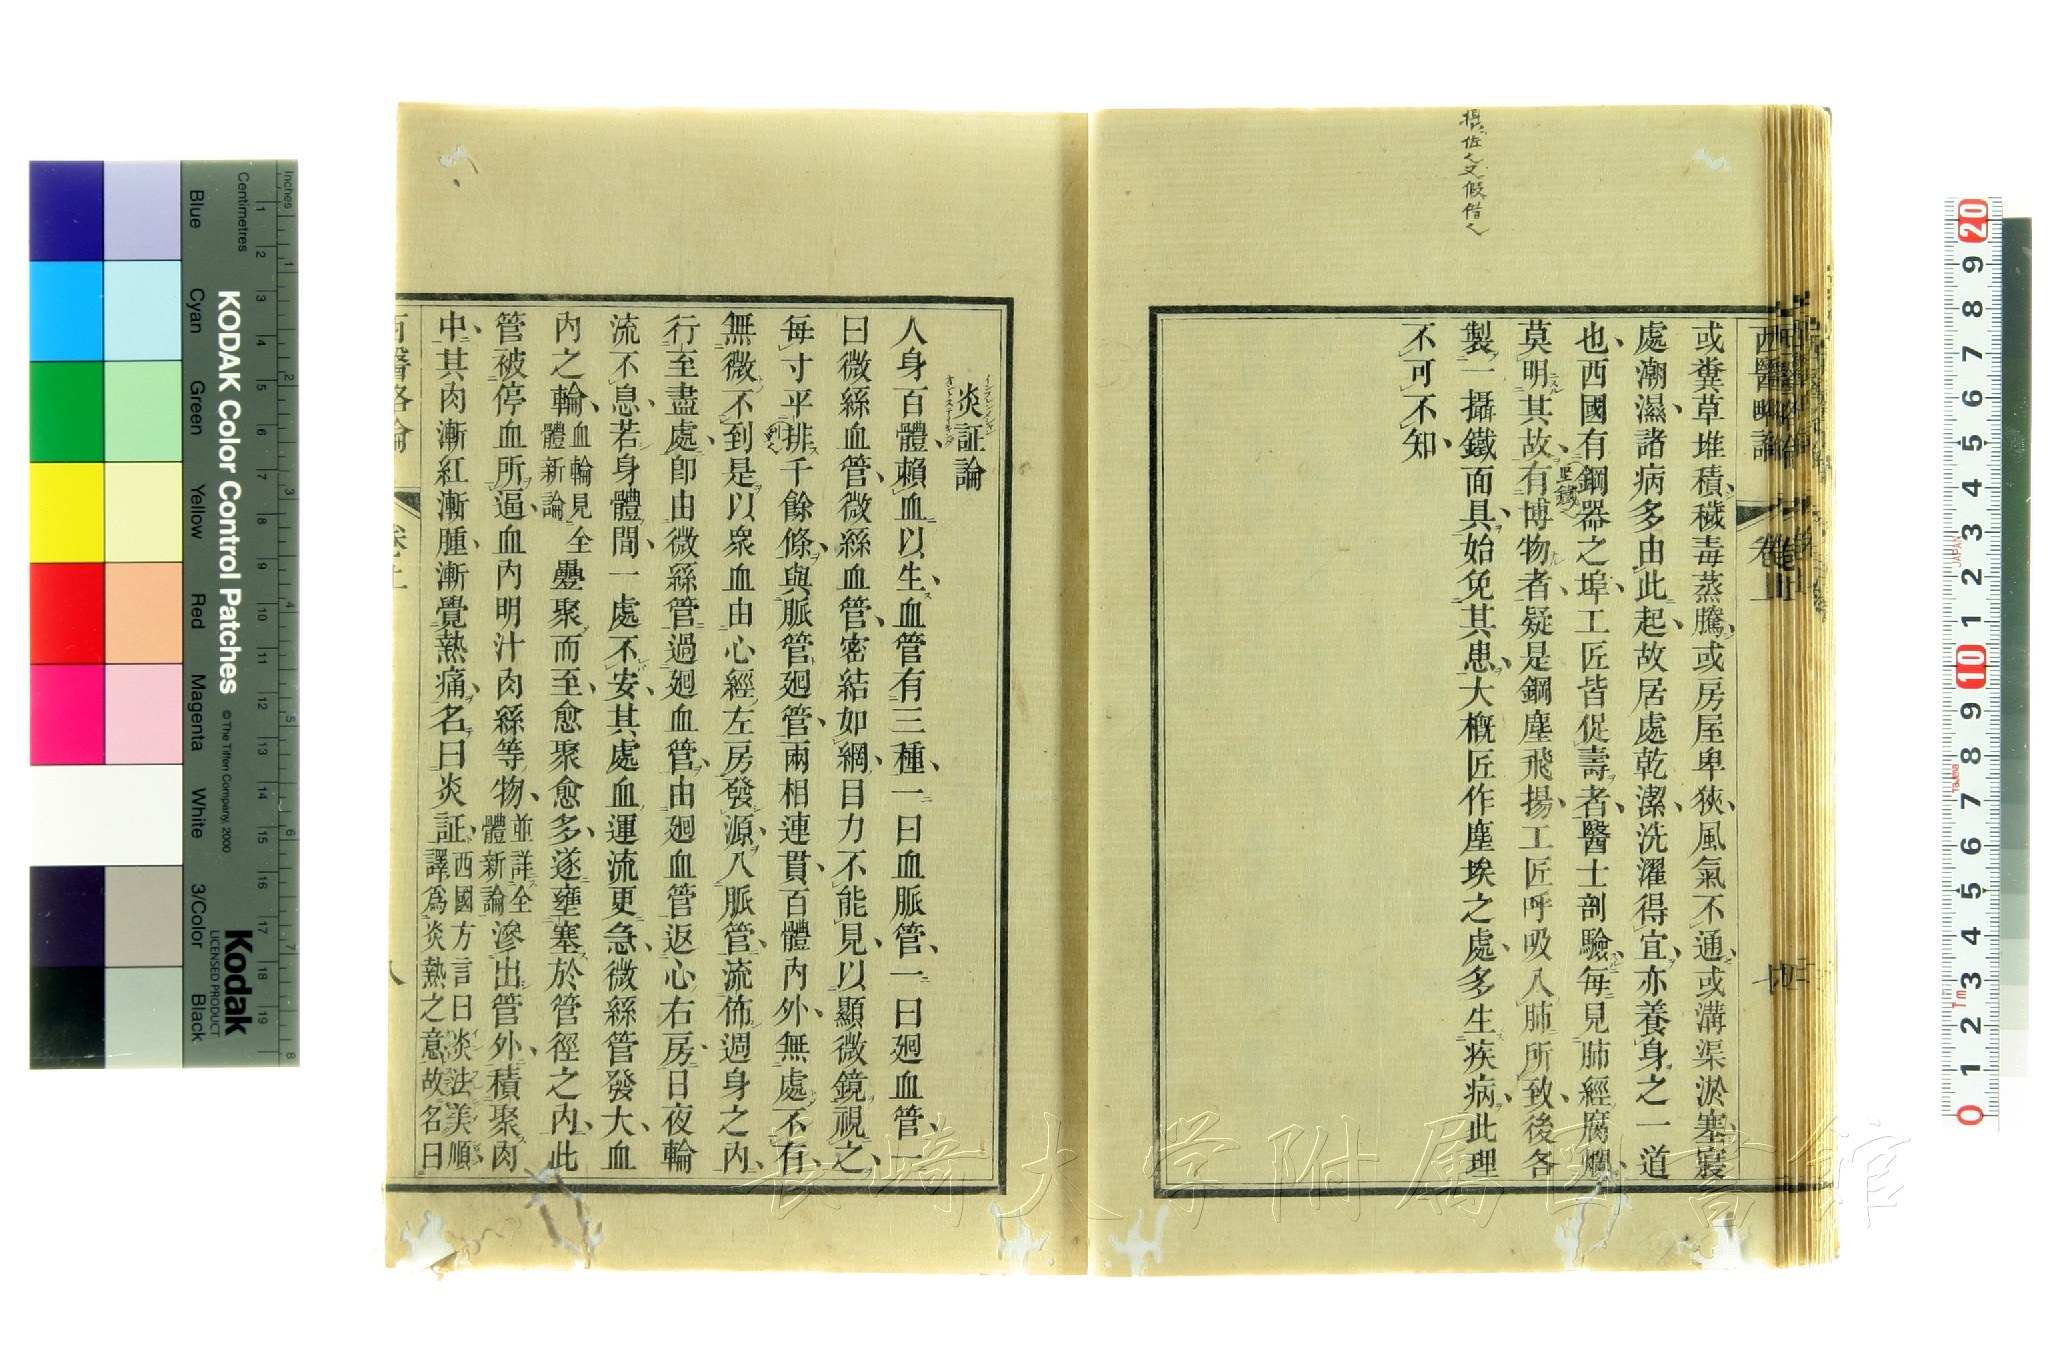 西醫略論 卷上
或糞草堆積、穢毒蒸騰、或房屋卑狹、風氣不通、或溝渠淤塞、寢
處潮濕、諸病多由此起、故居處乾潔、洗濯得宜、亦養身之一道
也、西國有鋼器之埠、工匠皆促壽者、醫士剖驗、每見肺經腐爛、
莫明其故、有博物者、疑是鋼塵飛揚、工匠呼吸入肺所致、後各
製一攝鐵面具、始免其患、大概匠作塵埃之處、多生疾病、此理
不可不知、
炎証論
人身百體、賴血以生、血管有三種、一曰血脈管、一曰廻血管、一
曰微絲血管、微絲血管、密結如網、目力不能見、以顯微鏡視之、
每寸平排千餘條、與脈管廻管、兩相連貫、百體內外、無處不有、
無微不到、是以衆血由心經左房發源、入脈管、流佈週身之內、
行至盡處、卽由微絲管過廻血管、由廻血管返心右房、日夜輪
流不息、若身體間一處不安、其處血運流更急、微絲管發大、血
內之輪、血輪見全體新論疊聚而至、愈聚愈多、遂壅塞於管徑之內、此
管被停血所逼、血內明汁肉絲等物、並詳全體新論滲出管外、積聚肉
中、其肉漸紅漸腫、漸覺熱痛、名曰炎証、西國方言曰炎法美順譯爲炎熱之意故名曰
西醫略論 卷上 八
KODAK Color Control Patches
© The Tiffen Company, 2000
Kodak
LICENSED PRODUCT
Inches
Centimetres
Blue
Cyan
Green
Yellow
Red
Magenta
White
3/Color
Black
JAPAN
長崎大学附属図書館